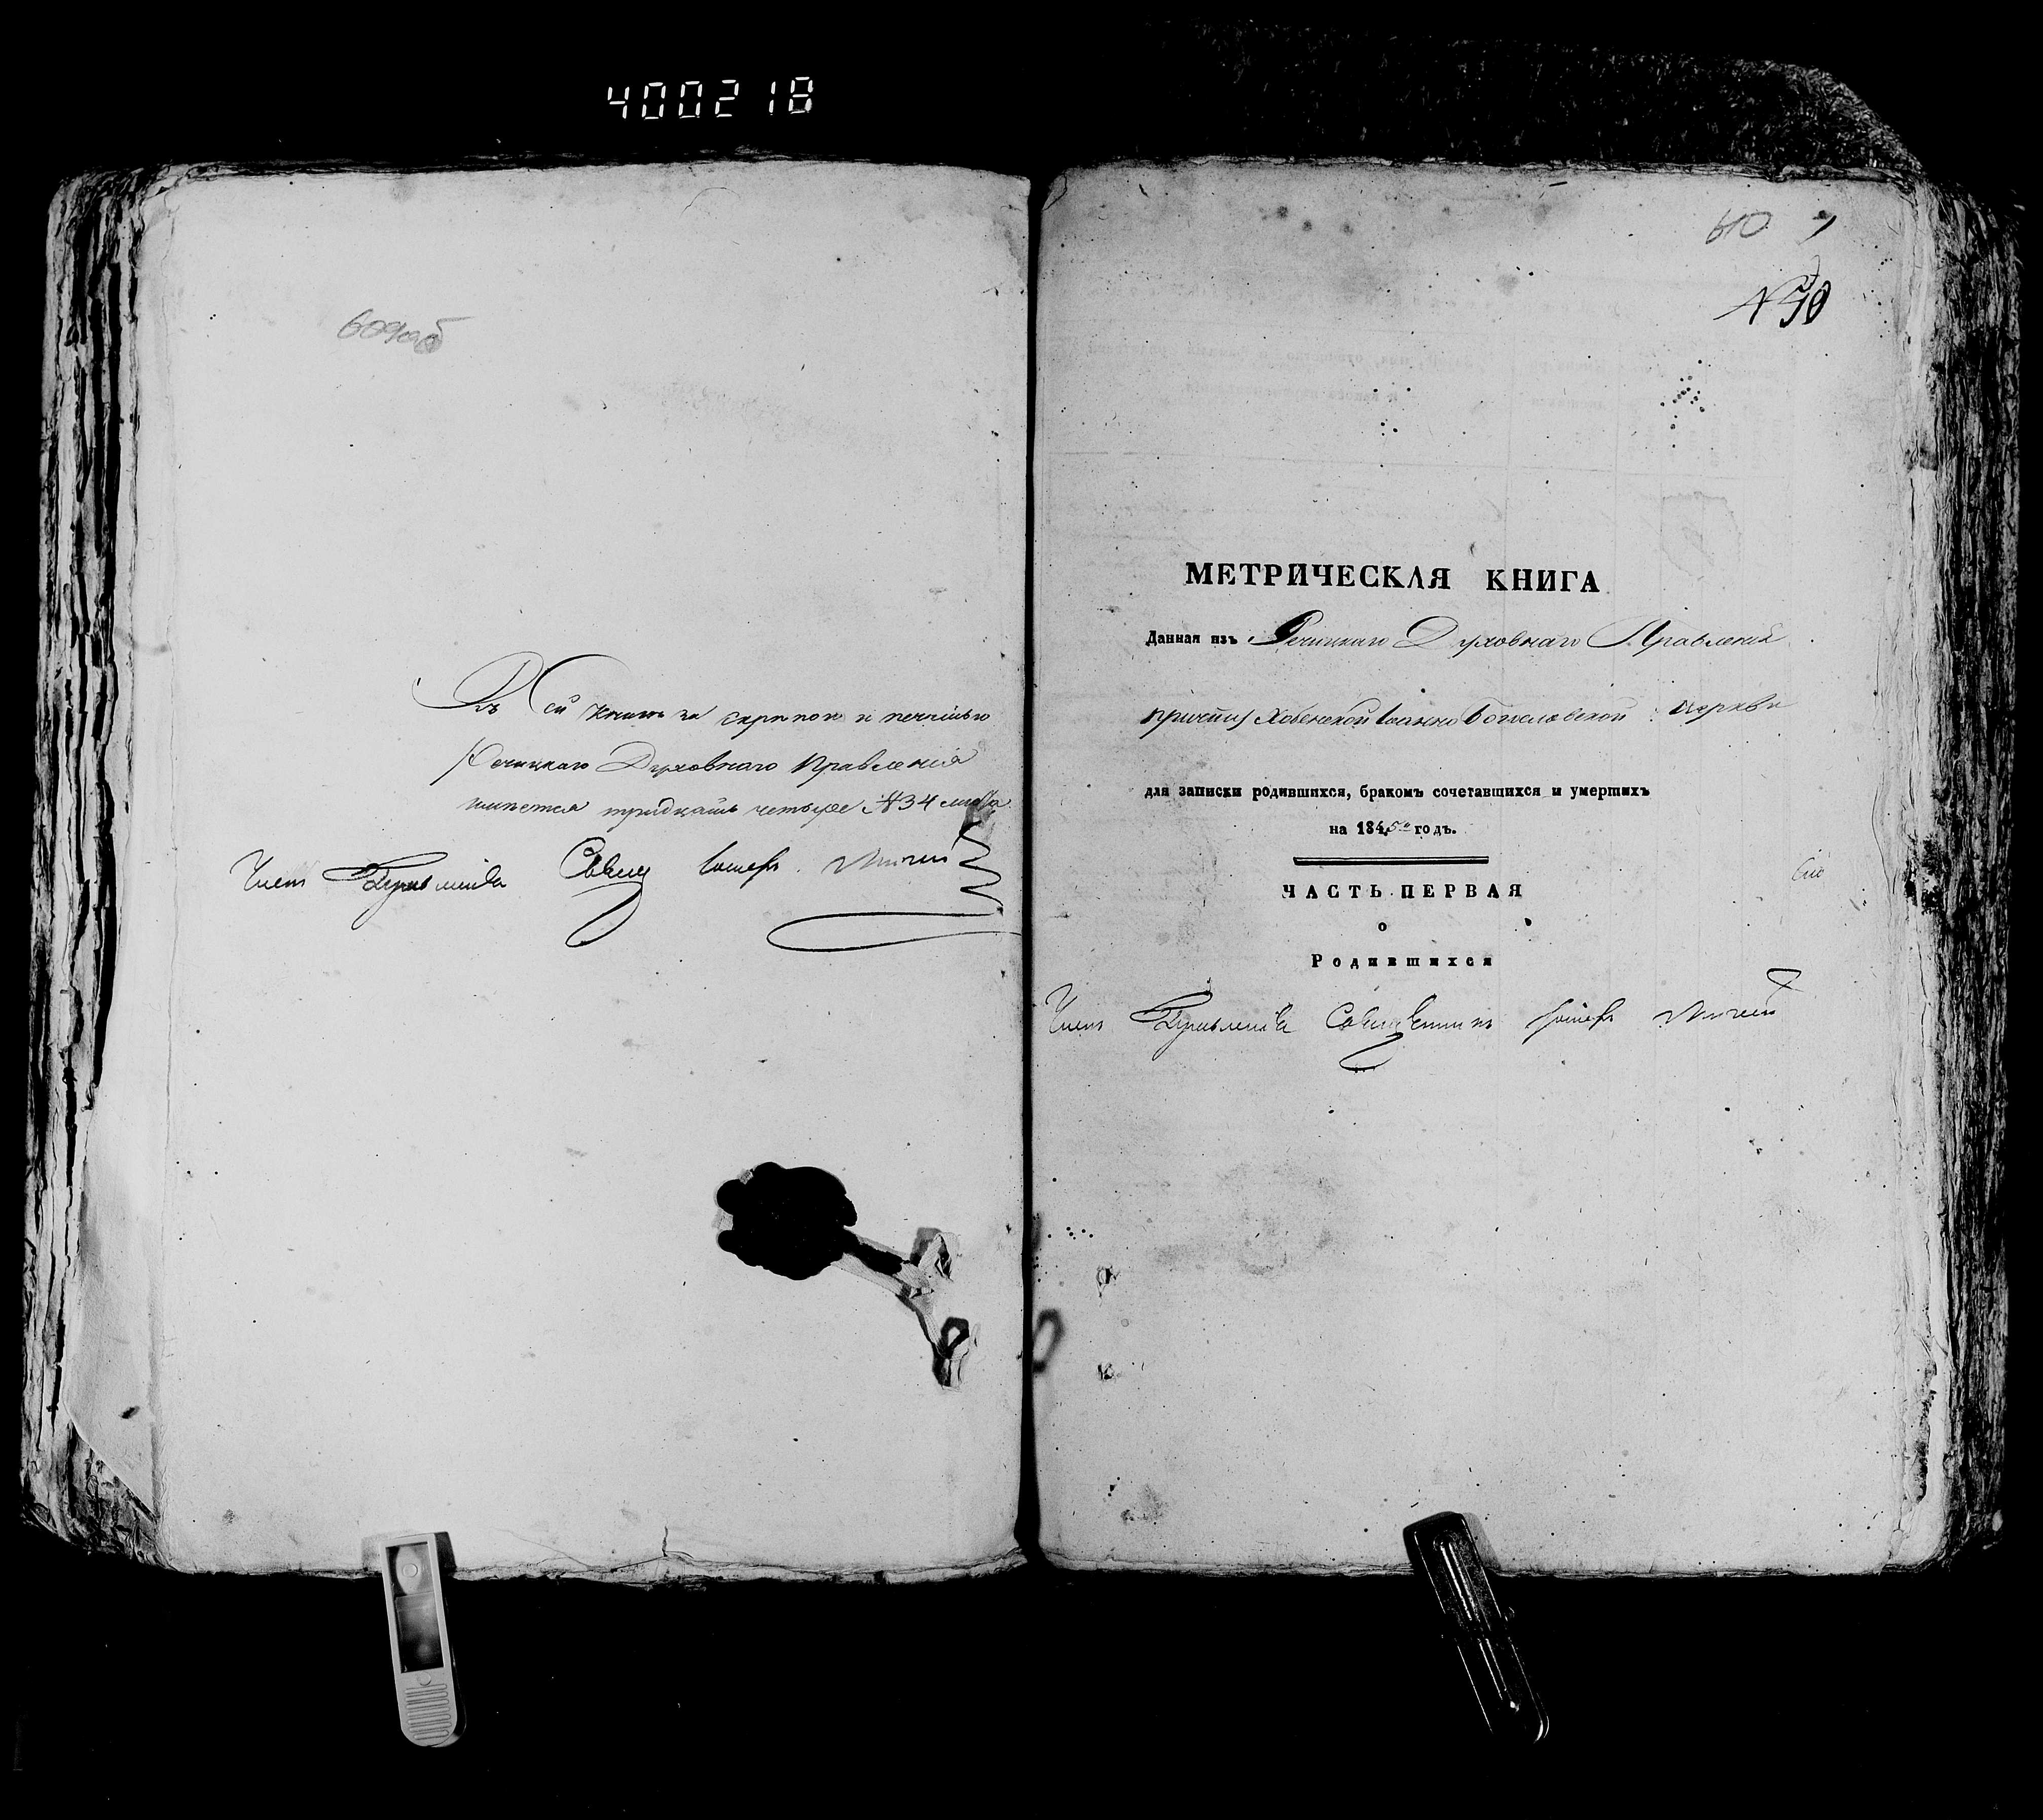 400218
609об
Въ сей книгѣ за скрѣпою и печатью
Речицкаго Духовнаго Правленія
имѣется тридцать четыре №34 листа
Членъ Правленія Свящ Іосифъ
610 1
№50
МЕТРИЧЕСКАЯ КНИГА
Данная изъ Речицкаго Духовнаго Правленія
причту Хобенской Іоанно Богословской церкви
для записки родившихся, бракомъ сочетавшихся и умершихъ
на 1845й годъ.
ЧАСТЬ ПЕРВАЯ
о
Родившихся
Членъ Правленія Священникъ Іосифъ